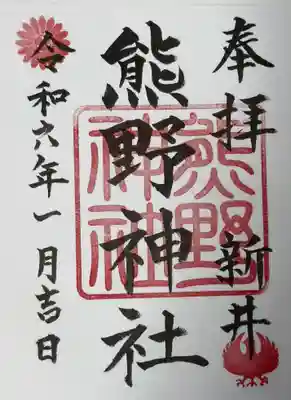 奉拝 新井
熊野神社
熊野
神社
令和六年一月吉日